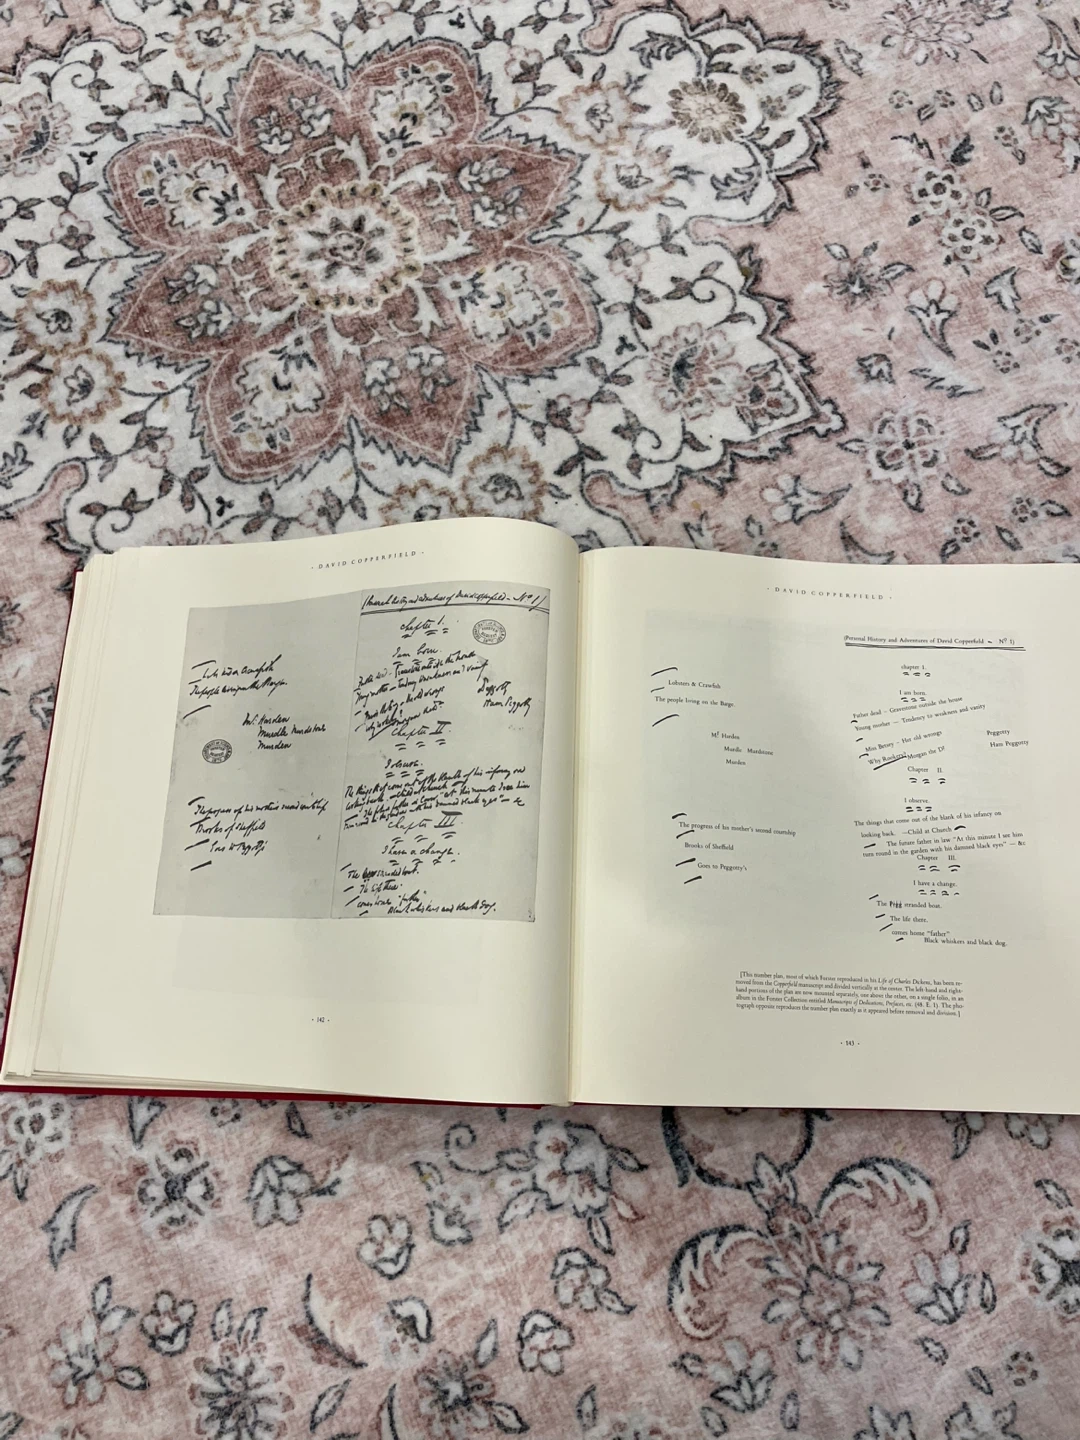 · DAVID COPPERFIELD ·
(Personal History and Adventures of David Copperfield – Nº 1)
Chapter I.
I am born.
Lobsters & Crawfish
Father dead – Gravestone outside the house
The people living on the Barge
Young mother – Tendency to weakness and vanity
Peggotty
Miss Betsey – Her old wrongs
Ham Peggotty
Mr. Harden
Murdle Murdstone
Murden
Chapter II.
I observe.
The things that come out of the blank of his infancy on
looking back. – Child at Church
The future father in law "At this minute I see him
turn round in the garden with his damned black eyes" – &c
The progress of his mother's second courtship
Brooks of Sheffield
Goes to Peggotty's
Chapter III.
I have a change.
The stranded boat.
The life there.
comes home "father"
Black whiskers and black dog.
· 142 ·
· DAVID COPPERFIELD ·
(Personal History and Adventures of David Copperfield – Nº 1)
Lobsters & Crawfish
The people living on the Barge
Mr Harden
Murdle Murdstone
Murden
The progress of his mother's second courtship
Brooks of Sheffield
Goes to Peggotty's
chapter I.
I am born.
Father dead – Gravestone outside the house
Young mother – Tendency to weakness and vanity
Miss Betsey – Her old wrongs Peggotty
Why Rookery? Morgan the D? Ham Peggotty
Chapter II.
I observe.
The things that come out of the blank of his infancy on
looking back. –Child at Church
The future father in law "At this minute I see him
turn round in the garden with his damned black eyes" – &c
Chapter III.
I have a change.
The stranded boat.
The life there.
comes home "father"
Black whiskers and black dog.
[This number plan, most of which Forster reproduced in his Life of Charles Dickens, has been re-
moved from the Copperfield manuscript and divided vertically at the center. The left-hand and right-
hand portions of the plan are now mounted separately, one about the other, on a single folio, in an
album in the Forster Collection entitled Manuscripts of Dedications, Prefaces, etc. (48. E. 1). The pho-
tograph opposite reproduces the number plan exactly as it appeared before removal and division.]
· 143 ·